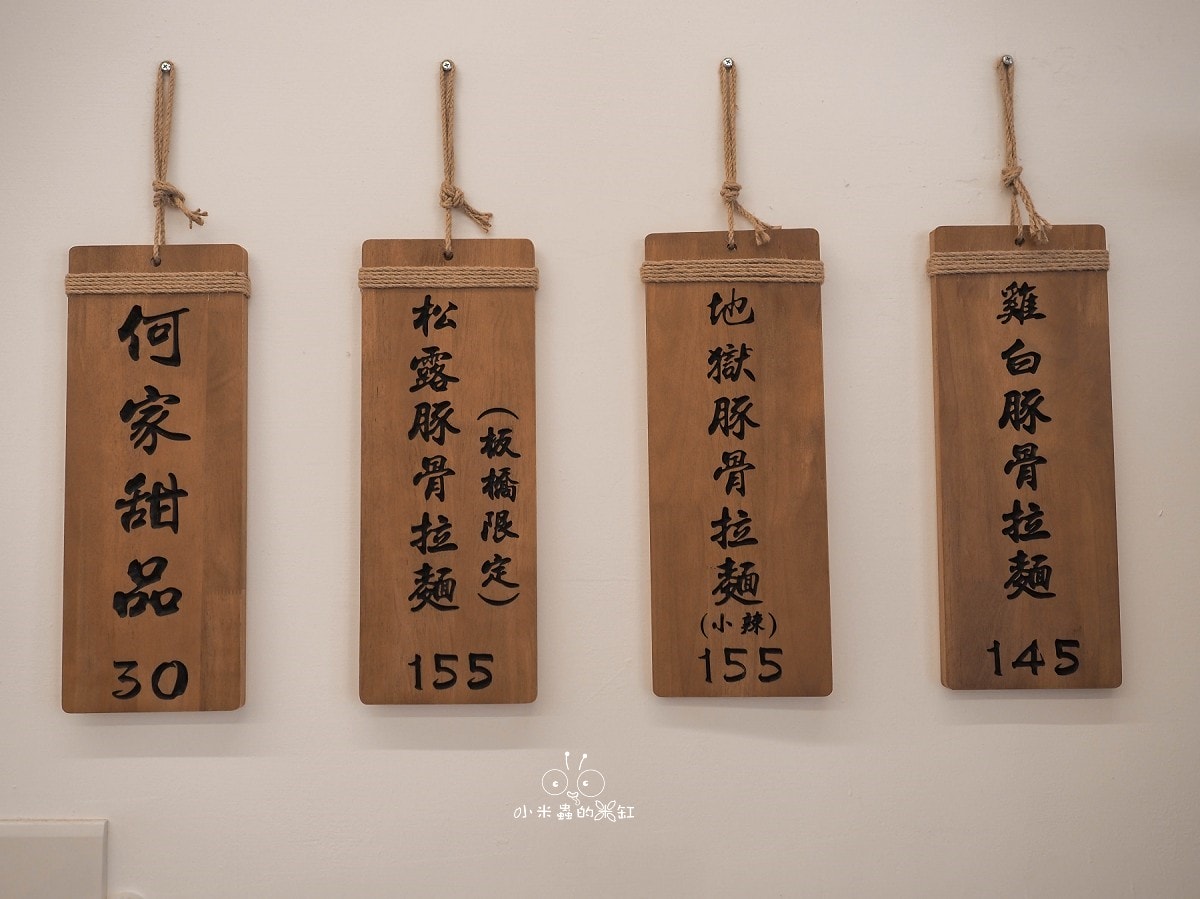 何家甜品
30
松露豚骨拉麵
(板橋限定)
155
地獄豚骨拉麵
(小辣)
155
雞白豚骨拉麵
145
小米蟲的米缸